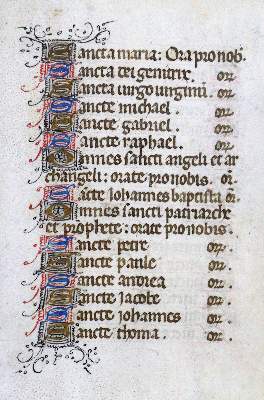 Sancta maria: Ora pro nob.
Sancta dei genitrix. or.
Sancta uirgo uirginū. or.
Sancte michael. or.
Sancte gabriel. or.
Sancte raphael. or.
Omnes sancti angeli et ar
changeli: orate pro nobis. or.
Sācte Iohannes baptista or.
Omnes sancti patriarche
et prophete: orate pro nobis.
Sancte petre or.
Sancte paule or.
Sancte andrea or.
Sancte iacobe or.
Sancte iohannes or.
Sancte thoma. or.